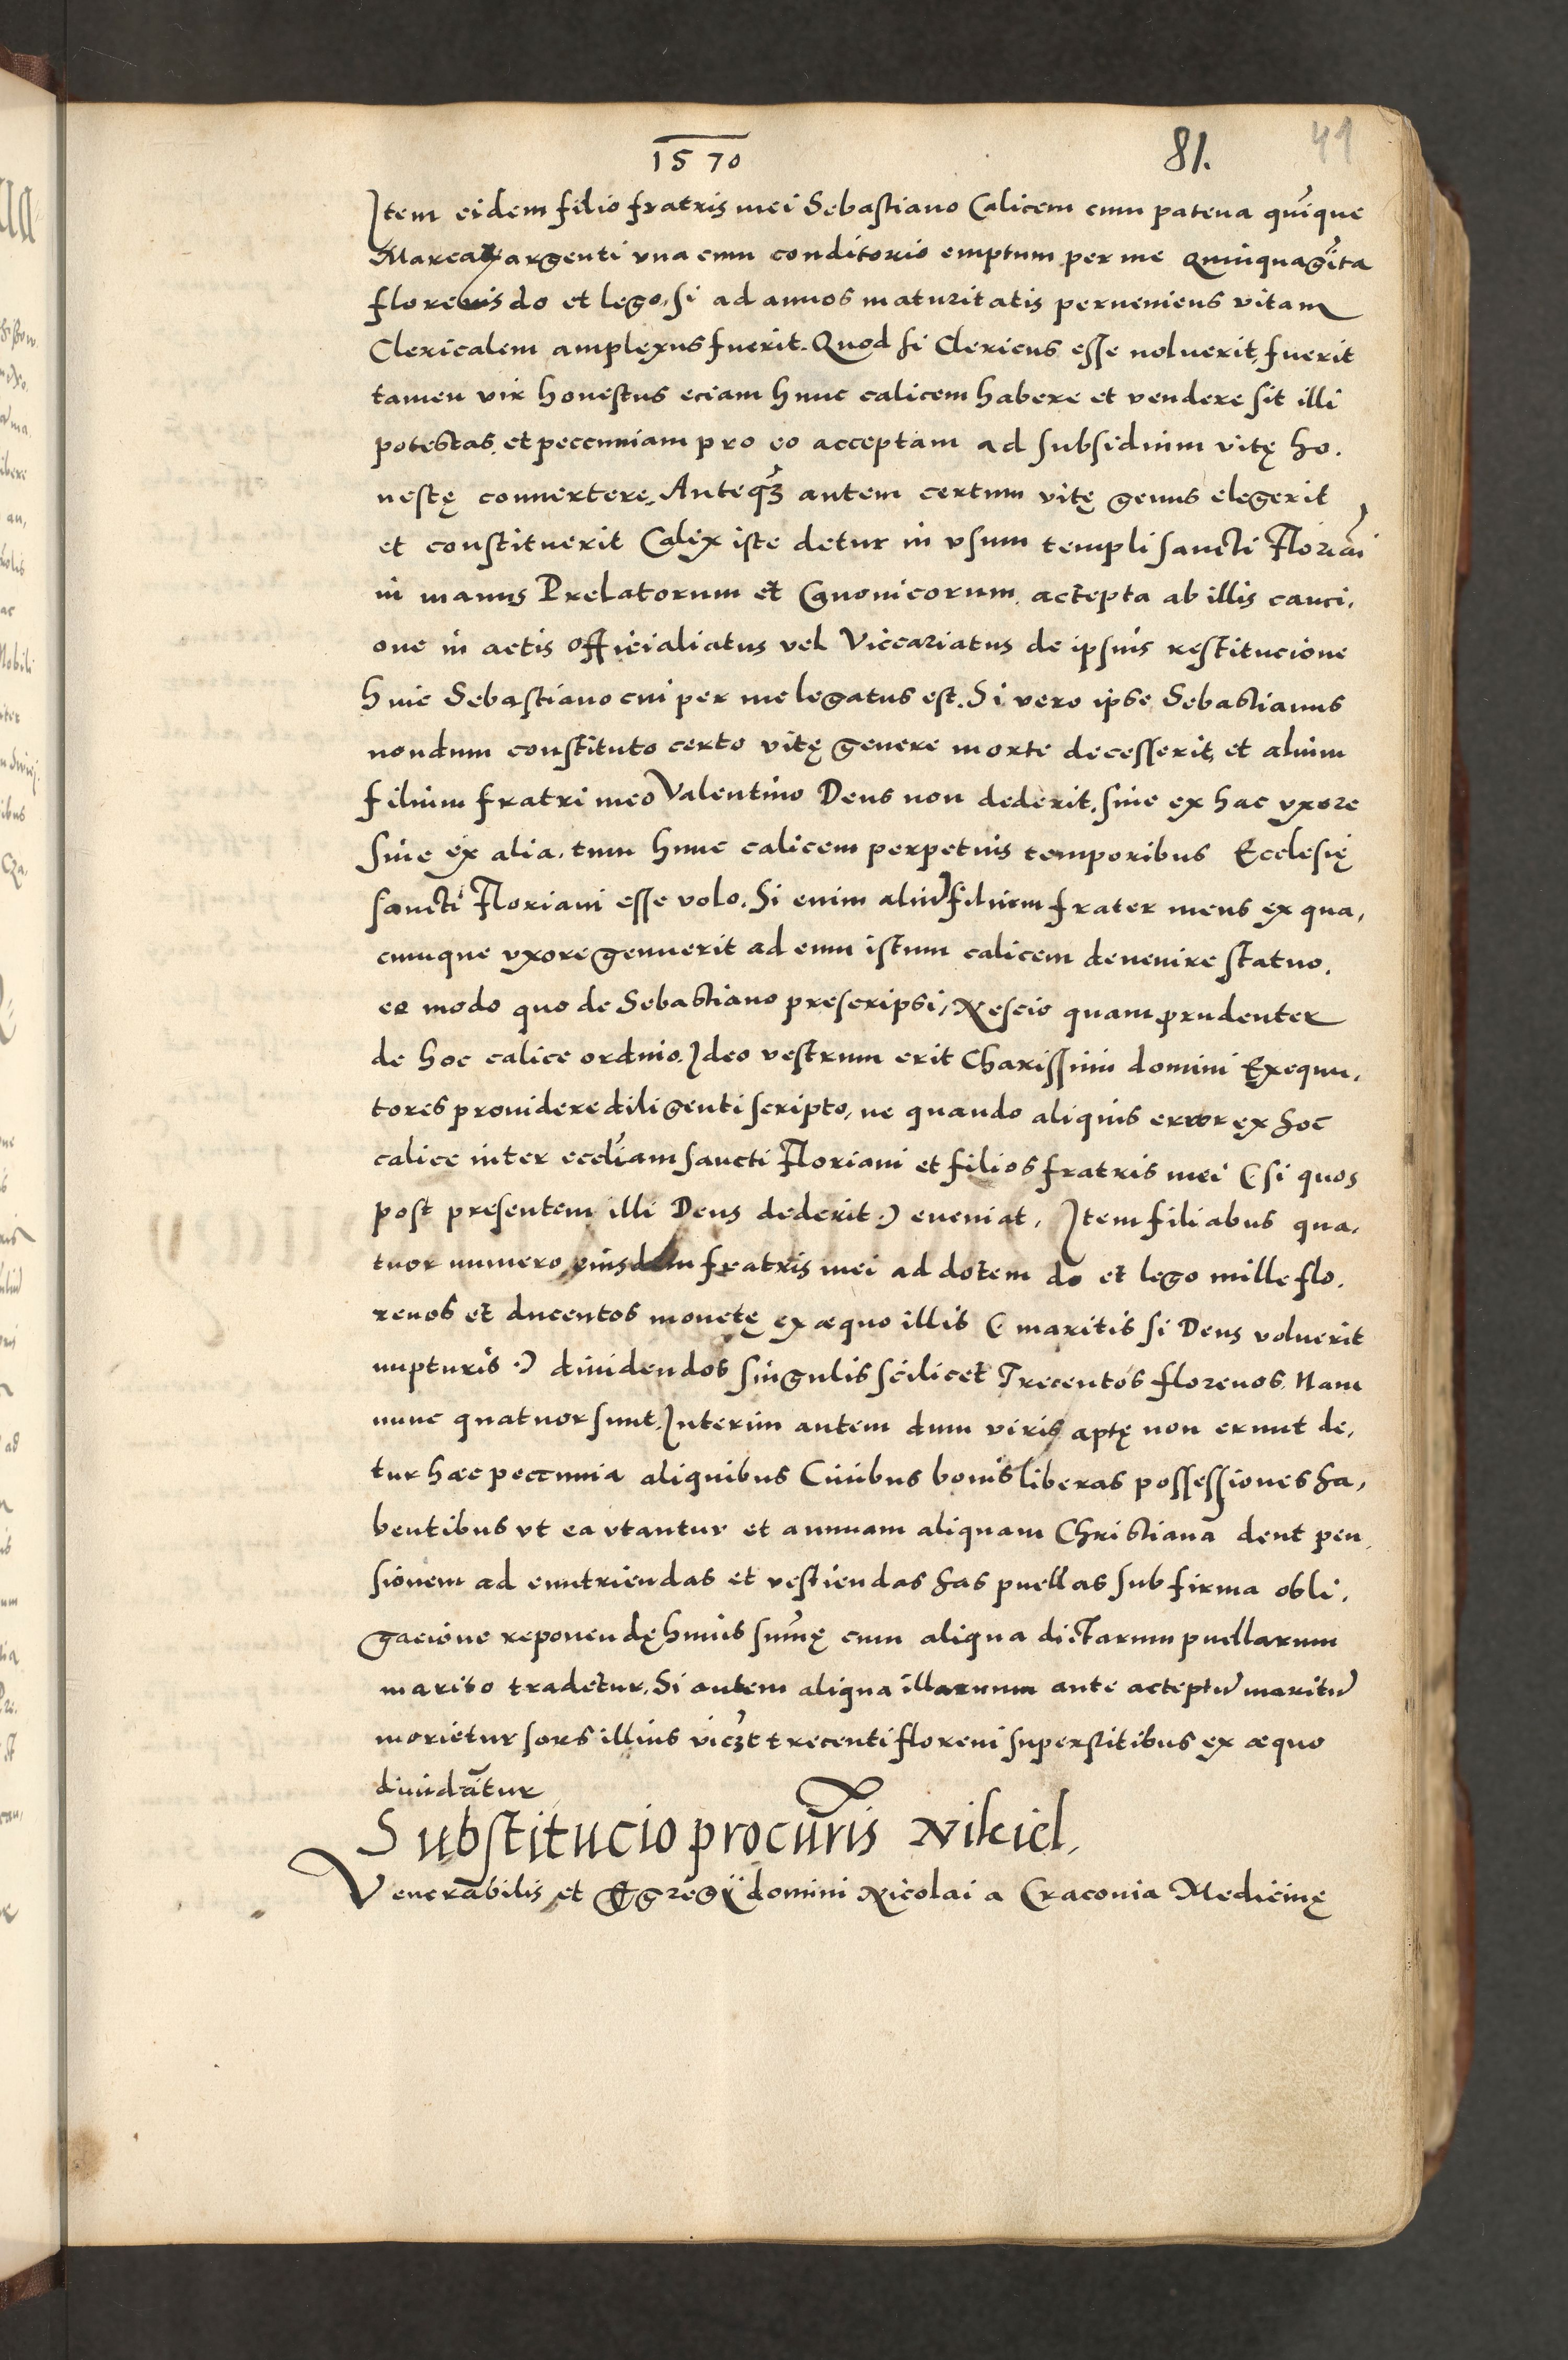 1570 81. 41
Item eidem filio fratris mei Sebastiano Calicem cum patena quīque
Marcarum argenti vna cum conditorio emptum per me Quinquagīta
florenis do et lego, si ad annos maturitatis perueniens vitam
Clericalem amplexus fuerit. Quod si Clericus esse noluerit, fuerit
tamen vir honestus eciam hunc calicem habere et vendere sit illi
potestas, et peccuniam pro eo acceptam ad subsidium vitę ho,
nestę conuertere, Anteqȝ autem certum vitę genus elegerit
et constituerit Calix iste detur in vsum templi sancti Floriāi
in manus Prelatorum et Canonicorum, accepta ab illis cauci,
one in actis officialiatus vel Viccariatus de ipsius restitucione
huic Sebastiano cui per me legatus est. Si vero ipse Sebastianus
nondum constituto certo vitę genere morte decesserit, et alium
filium fratri meo Valentino Deus non dederit, siue ex hac vxore
siue ex alia, tum hunc calicem perpetuis temporibus Ecclesię
sancti Floriani esse volo. Si enim aliū filium frater meus ex qua,
cunque vxore genuerit ad eum istum calicem deuenire statuo,
eo modo quo de Sebastiano prescripsi, Nescio quam prudenter
de hoc calice ordino. Ideo vestrum erit Charissimi domini Exequu,
tores prouidere diligenti scripto, ne quando aliquis error ex hoc
calice inter eccliam sancti Floriani et filios fratris mei (: si quos
post presentem illi Deus dederit :) eueniat, Item filiabus qua,
tuor numero eiusdem fratris mei ad dotem do et lego mille flo,
renos et ducentos monetę ex æquo illis (: maritis si Deus voluerit
nupturis :) diuidendos singulis scilicet Trecentos florenos, Nam
nunc quatuor sunt. Interim autem dum viris aptę non erunt de,
tur hæc peccunia aliquibus Ciuibus bonis liberas possessiones ha,
bentibus vt ea vtantur et annuam aliquam Christiana dent pen,
sionem ad enutriendas et vestiendas has puellas sub firma obli,
gacione reponendę huius sum̄ę cum aliqua dictarum puellarum
marito tradetur. Si autem aliqua illarum ante acceptū maritū
morietur sors illius viczt trecenti floreni superstitibus ex æquo
diuidātur
Substitucio procurīs Nikiel,
Venerabilis et Egregÿ domini Nicolai a Cracouia Medicinę